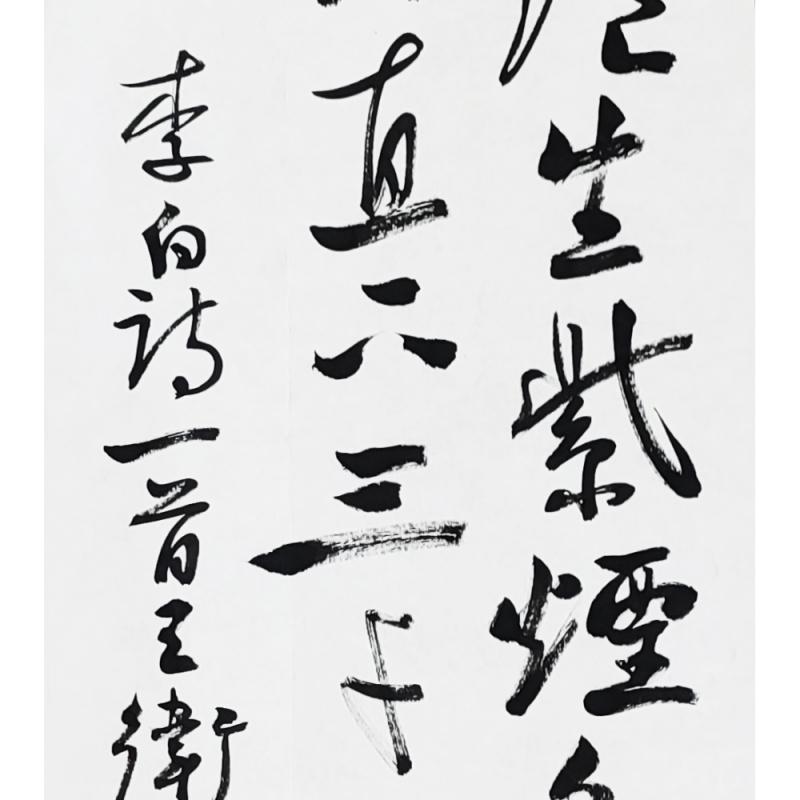 生紫煙
直下三千
李白詩一首王衛